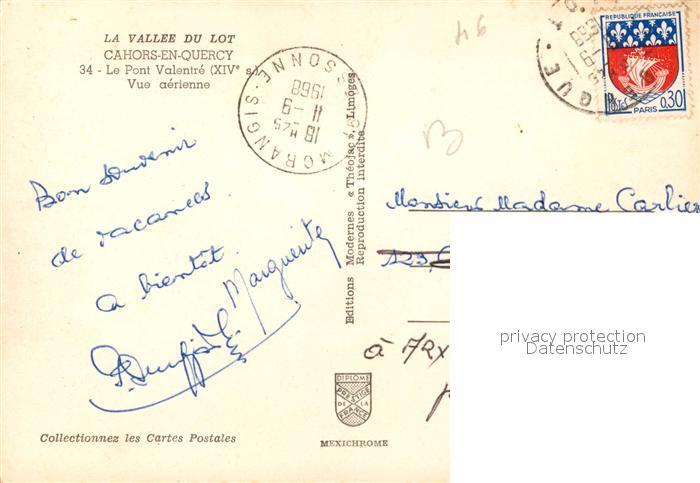 LA VALLEE DU LOT
CAHORS-EN-QUERCY
34 - Le Pont Valentré (XIVe s
Vue aérienne
MORANGIS ESSONNE
18 H45
11 - 9
1968
46
REPUBLIQUE FRANÇAISE
Postes 0,30
PARIS
Bon souvenir
de vacances
a bientôt
Marguerite
Editions Modernes « Théojac », Limoges
Reproduction interdite
Monsieur Madame Carlier
123,
à
privacy protection
Datenschutz
DIPLOME
PRESTIGE
DE LA
FRANCE
Collectionnez les Cartes Postales
MEXICHROME